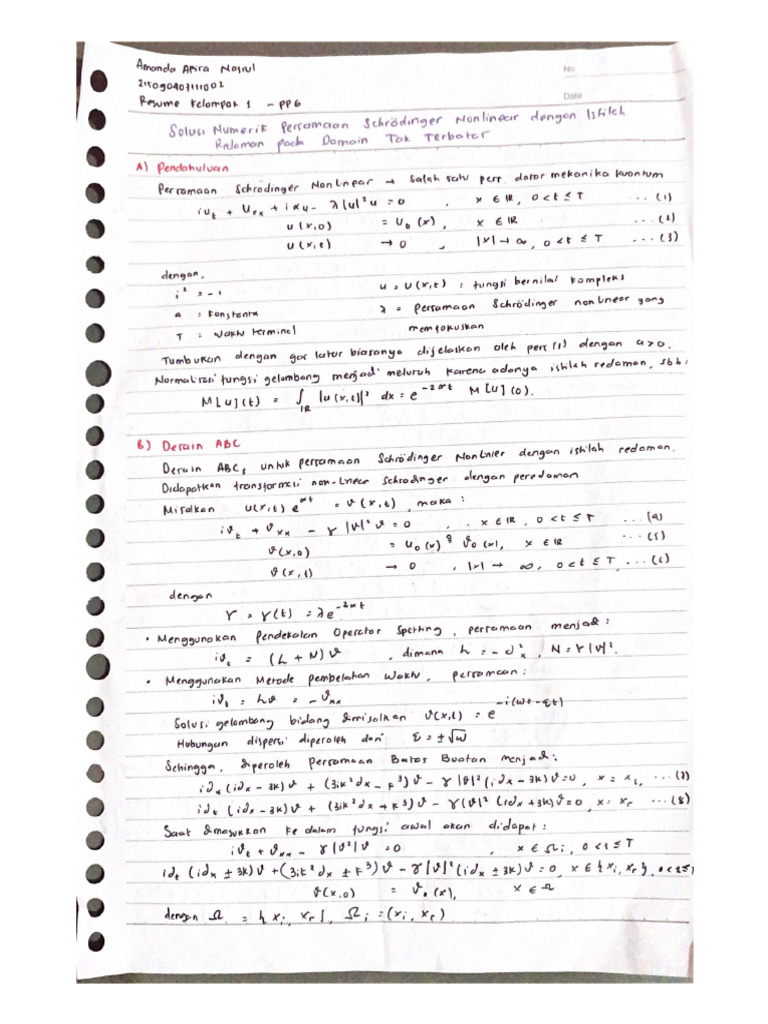 Amanda Apira Nasrul
No
215090407111002
Resume Kelompok 1 - PP6
Date
Solusi Numerik Persamaan Schrödinger Nonlinear dengan Istilah
Redaman pada Domain Tak Terbatas
A) Pendahuluan
Persamaan Schrodinger Nonlinear → Salah satu pers. dasar mekanika kuantum
iu_t + U_xx + iαu - λ|u|²u = 0 , x ∈ IR, 0 < t ≤ T ... (1)
u(x,0) = U_0(x), x ∈ IR ... (2)
u(x,t) → 0 , |x| → ∞, 0 < t ≤ T ... (3)
dengan,
i² = -1 u = U(x,t) : fungsi bernilai kompleks
a = konstanta λ = Persamaan Schrödinger nonlinear yang
T = waktu terminal memfokuskan
Tumbukan dengan gas latar biasanya dijelaskan oleh pers (1) dengan a>0.
Normalisasi fungsi gelombang menjadi meluruh karena adanya istilah redaman, sbb:
M[U](t) = ∫_IR |u(x,t)|² dx = e^{-2αt} M[U](0).
B) Desain ABC
Desain ABC, untuk persamaan Schrödinger Nonlinier dengan istilah redaman.
Didapatkan transformasi non-linear schrodinger dengan peredaman
Misalkan u(x,t) e^{αt} = v(x,t), maka :
iv_t + v_xx - γ|v|²v = 0 , x ∈ IR, 0 < t ≤ T ... (4)
v(x,0) = u_0(x) = v_0(x), x ∈ IR ... (5)
v(x,t) → 0 , |x| → ∞, 0 < t ≤ T ... (6)
dengan
γ = γ(t) = λe^{-2αt}
• Menggunakan Pendekatan Operator Spliting, persamaan menjadi :
iv_t = (L + N)v , dimana L = -∂²_x, N = γ|v|².
• Menggunakan Metode pembelahan Waktu, persamaan :
iv_t = Lv = -v_xx
Solusi gelombang bidang dimisalkan v(x,t) = e^{-i(wt-ξt)}
Hubungan dispersi diperoleh dari ξ = ±√w
Sehingga, diperoleh Persamaan Batas Buatan menjadi :
i∂_t(i∂x - 3k)v + (3ik²∂x - k³)v - γ|v|²(i∂x - 3k)v=0, x = x_l, ... (7)
i∂t (i∂x - 3k)v + (3ik²∂x + k³)v - γ|v|² (i∂x+3k)v=0, x = x_r ... (8)
Saat dimasukkan ke dalam fungsi awal akan didapat :
iv_t + v_xx - γ|v|²v = 0 , x ∈ Ω_i, 0 < t ≤ T
i∂t (i∂x ± 3k)v + (3ik²∂x ± k³)v - γ|v|²(i∂x ± 3k)v = 0, x ∈ {x_l, x_r}, 0 < t ≤ T
v(x,0) = v_0(x), x ∈ Ω
dengan Ω = [x_l, x_r], Ω_i = (x_l, x_r)